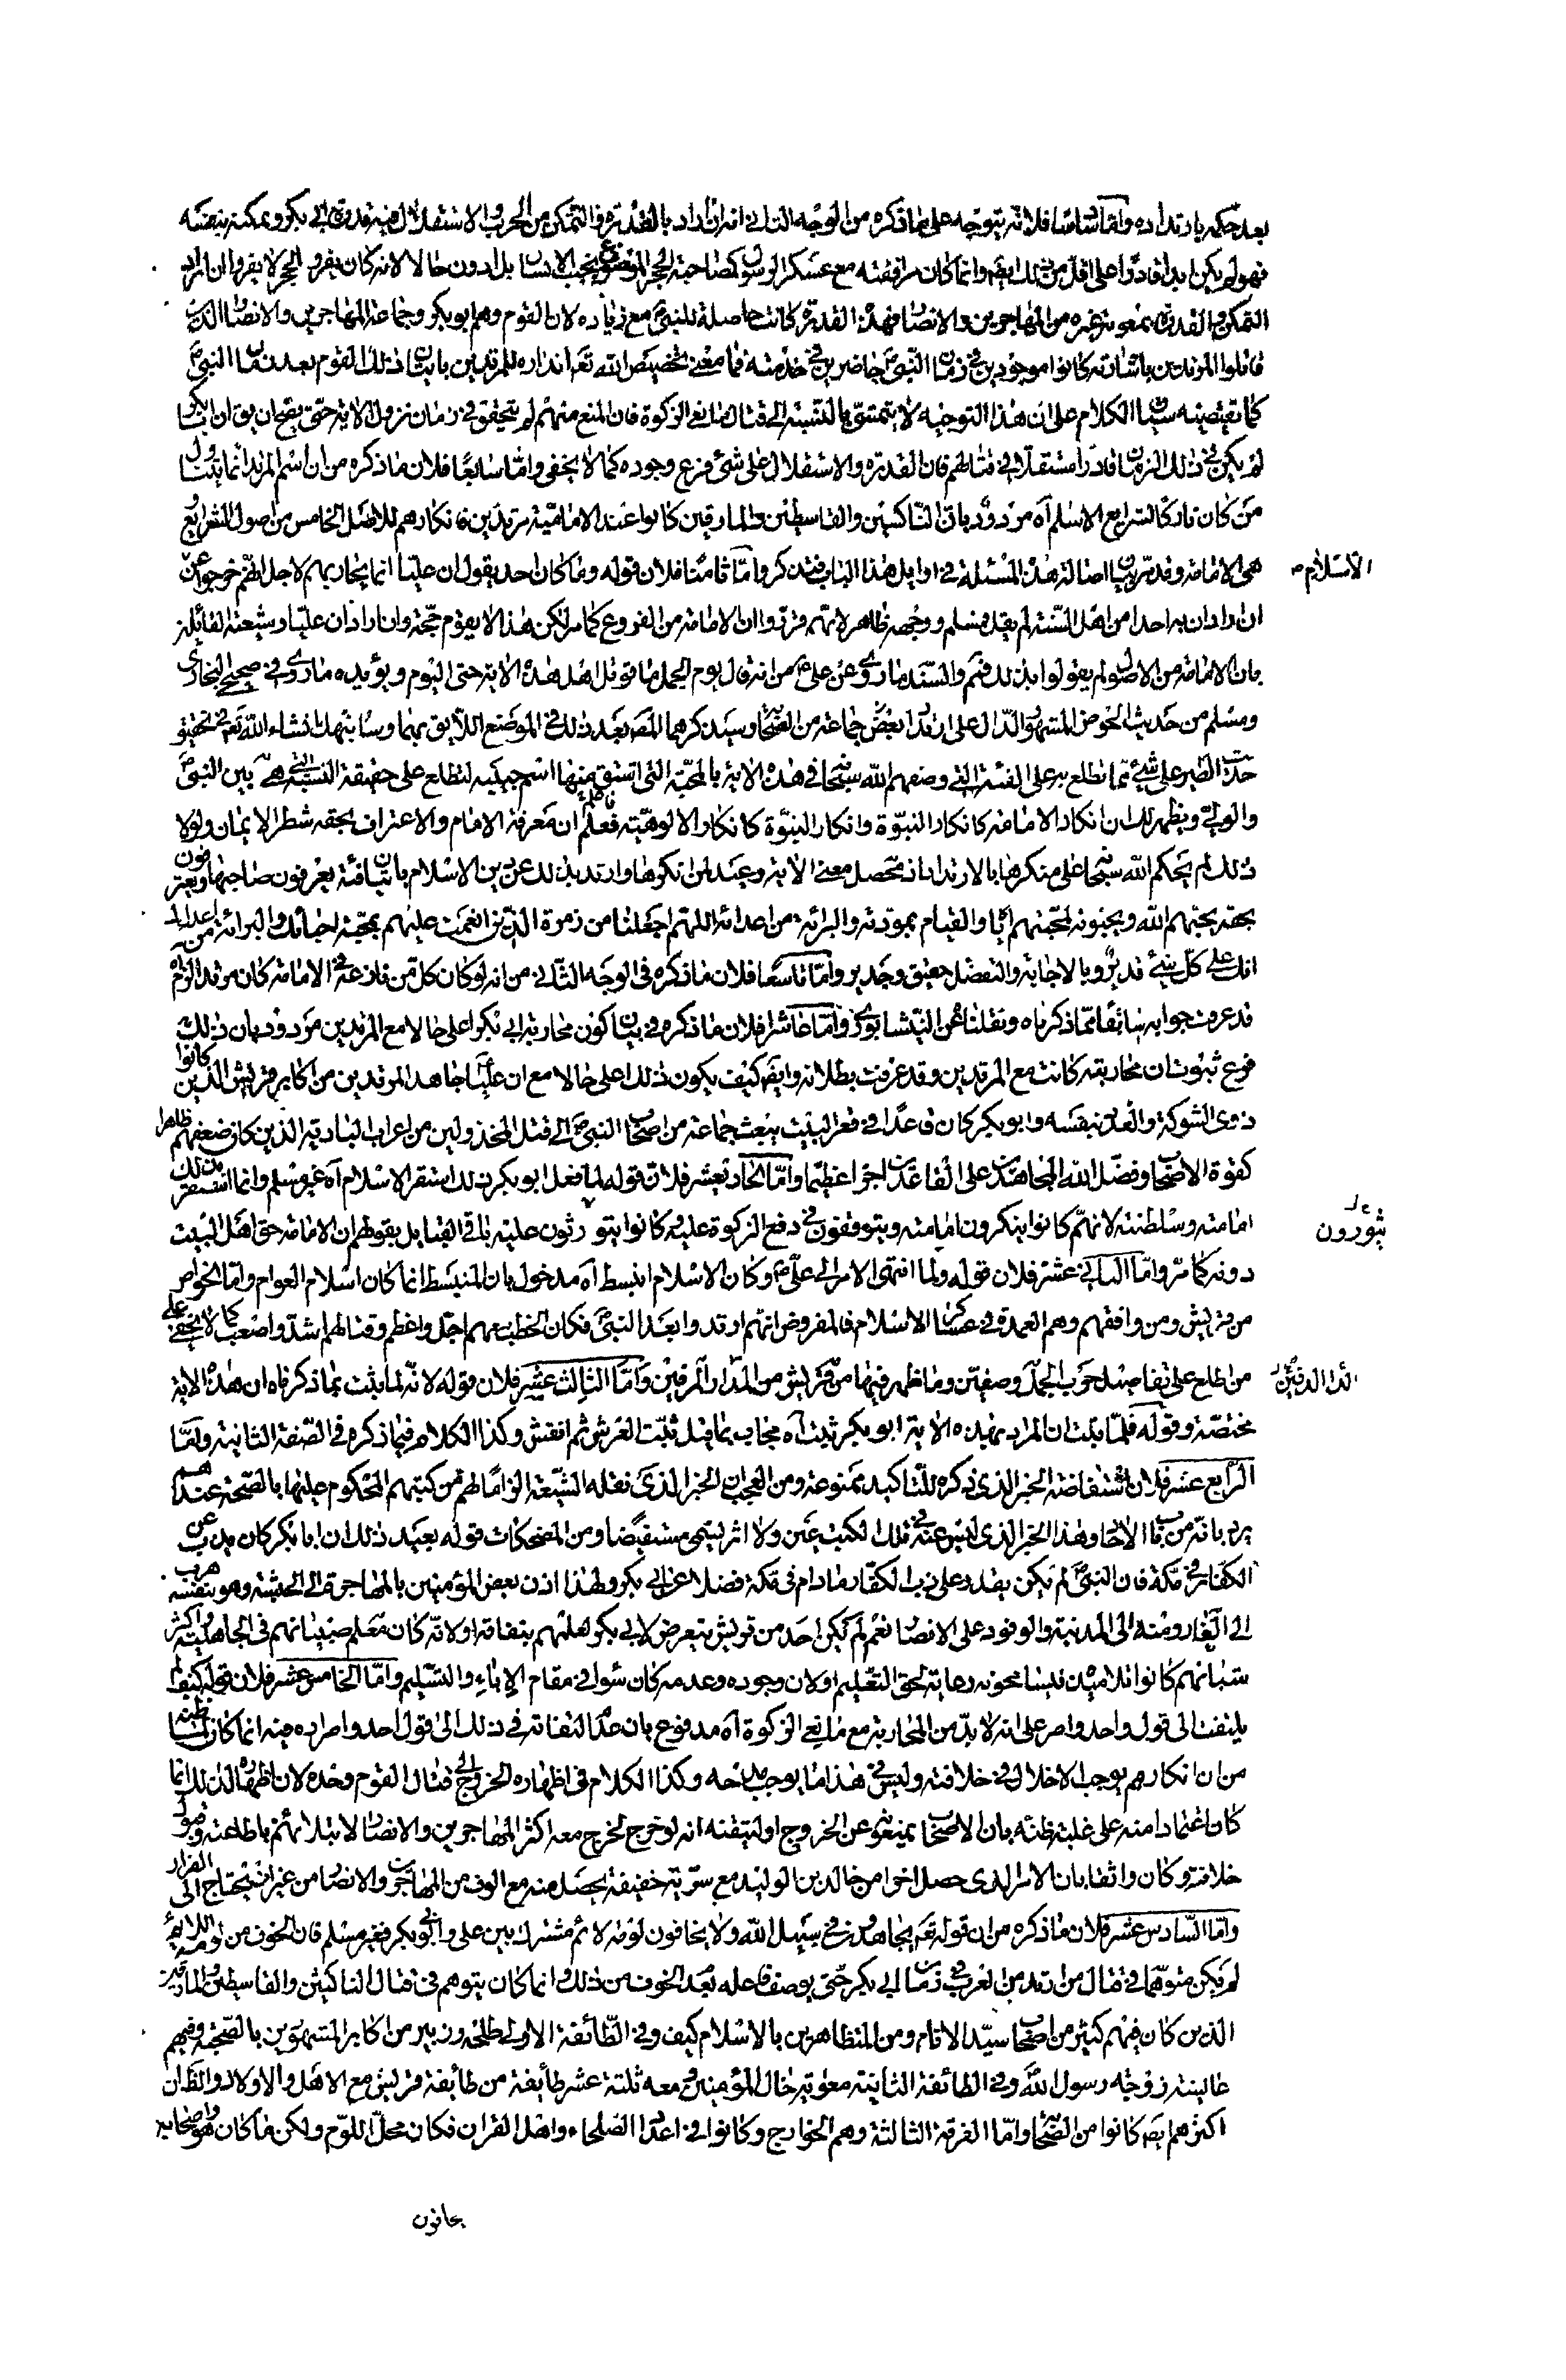 بعد حكمه بارتداده واما سادسا فلانه يتوجه على ما ذكره من الوجه الثاني انه ان اراد بالقدرة والتمكن من الحرب والاستقلال فيه قدرة ابي بكر وتمكنه بنفسه
فهو لم يكن ابدا قادرا على اقل من ذلك ايضا وانما كان مرافقته مع عسكر الرسول كمصاحبة الحجر الموضوع بجنب الانسان بل ادون حالا لانه كان يفر والحجر لا يفر وان اراد
التمكن والقدرة بمعونة غيره من المهاجرين والانصار فهذه القدرة كانت حاصلة للنبي مع زيادة لان القوم وهم ابو بكر وجماعة المهاجرين والانصار الذين
قاتلوا المرتدين باشارته كانوا موجودين في زمان النبي حاضرين في خدمته فما معنى تخصيص الله تعالى انذاره للمرتدين باتيان ذلك القوم بعد زمان النبي
كما يقتضيه سياق الكلام على ان هذا التوجيه لا يتمشى بالنسبة الى قتال مانعي الزكوة فان المنع منهم لم يتحقق في زمان نزول الاية حتى يصح ان يق ان ابا بكر
لم يكن في ذلك الزمان قادرا مستقلا في قتالهم فان القدرة والاستقلال على شئ فرع وجوده كما لا يخفى واما سابعا فلان ما ذكره من ان اسم المرتد انما يتناول
من كان تاركا لشرايع الاسلام آه مردود بان الناكثين والقاسطين والمارقين كانوا عند الامامية مرتدين بانكارهم للاصل الخامس من اصول الشرايع
هى الامامة وقد مر بيان اصالة هذه المسئلة في اوايل هذا الباب فتذكر واما ثامنا فلان قوله وما كان احد يقول ان عليا انما يحاربهم لاجل انهم خرجوا عن
الاسلام ص
ان اراد ان به احدا من اهل السنة لم يقل فمسلم ووجهه ظاهر لانهم قرروا ان الامامة من الفروع كما مر لكن هذا لا يقوم حجة وان اراد ان عليا وشيعته القائلين
بان الامامة من الاصول لم يقولوا بذلك فهم والسند ما روى عن علي من انه قال يوم الجمل ما قوتل اهل هذه الاية حتى اليوم ويؤيده ما روى في صحيح البخاري
ومسلم من حديث الحوض المشهور الدال على ارتداد بعض جماعة من الصحابة وسيذكرهما المص بعد ذلك في الموضع اللايق بهما وسانبهك انشاء الله تعالى في تحقيق
حديث الطير على شئ مما تطلع به على الفئة التي وصفهم الله سبحانه في هذه الاية بالمحبة التي اشتق منها اسم حبيبه لتطلع على حقيقة النسبة التي هي بين النبي
والولي ويظهر لك ان انكار الامامة كانكار النبوة وانكار النبوة كانكار الالوهية فعلم ان معرفة الامام والاعتراف بحقه شطر الايمان ولولا
ذلك لم يحكم الله سبحانه على منكرها بالارتداد اذ محصل معنى الاية وعيد لمن انكرها وارتد بذلك عن دين الاسلام باتيان فئة يعرفون صاحبها ويعترفون
بحقه يحبهم الله ويحبونه لمحبتهم اياه والقيام بمودته والبرائة من اعدائه اللهم اجعلنا من زمرة الذين انعمت عليهم بمحبة احبائك والبرائة من اعدائك
انك على كل شئ قدير وبالاجابة والتفضل حقيق وجدير واما تاسعا فلان ما ذكره في الوجه الثاني من انه لو كان كل من نازعه في الامامة كان مرتدا لزم آه
قد عرفت جوابه سابقا مما ذكرناه ونقلناه عن النيشابوري واما عاشرا فلان ما ذكره في بيان كون محاربة ابي بكر اعلى حالا مع المرتدين مردود بان ذلك
فرع ثبوت ان محاربته كانت مع المرتدين وقد عرفت بطلانه وايضا كيف يكون ذلك اعلى حالا مع ان عليا جاهد المرتدين من اكابر قريش الذين كانوا
ذوى الشوكة والعدة بنفسه وابو بكر كان قاعدا في قعر البيت يبعث جماعة من اصحاب النبي الى قتل المخذولين من اعراب البادية الذين كان ضعفهم ظاهرا
كقوة الاصحاب وفضل الله المجاهدين على القاعدين اجرا عظيما واما الحاد يعشر فلان قوله لما فعل ابو بكر ذلك استقر الاسلام آه غير مسلم وانما استقر بذلك
امامته وسلطنته لانهم كانوا ينكرون امامته ويتوقفون في دفع الزكوة عليه كانوا يتورثون عليه باقي القبايل بقولهم ان الامامة حق اهل البيت
يثورون
دونه كما مر واما الثاني عشر فلان قوله ولما انتهى الامر الى علي وكان الاسلام انبسط آه مدخول بان المنبسط انما كان اسلام العوام واما الخواص
من قريش ومن وافقهم وهم العمدة في عسكر الاسلام فالمفروض انهم ارتدوا بعد النبي فكان الخطب معهم اجل واعظم وقتالهم اشد واصعب كما لا يخفى على
من اطلع على تفاصيل حرب الجمل وصفين وما ظهر فيها من قريش من المدار المرفين واما الثالث عشر فلان قوله لانه لما ثبت بما ذكرناه ان هذه الاية
مختصة وقوله فلما ثبت ان المراد بهذه الاية ابو بكر ثبت آه مجاب بما قيل ثبت العرش ثم انقش وكذا الكلام فيما ذكره في الصفة الثانية واما
الرابع عشر فلان استفاضة الخبر الذي ذكره للتاكيد ممنوعة ومن العجب ان الخبر الذي نقله الشيعة الزاما لهم من كتبهم المحكوم عليها بالصحة عندهم
يرد بانه من باب الاحاد وهذا الخبر الذي ليس عنه في تلك الكتب عين ولا اثر يسمى مستفيضا ومن المضحكات قوله بعيد ذلك ان ابا بكر كان يذب عن
الكفار في مكة فان النبي لم يكن يقدر على ذب الكفار ما دام في مكة فضلا عن ابي بكر ولهذا اذن بعض المؤمنين بالمهاجرة الى الحبشة وهو بنفسه هرب
الى الغار ومنه الى المدينة والوفود على الانصار نعم لم يكن احد من قريش يتعرض لابي بكر لعلمهم بنفاقه او لانه كان معلم صبيانهم في الجاهلية واكثر
شبانهم كانوا تلاميذه فيسامحونه رعاية لحق التعليم او لان وجوده وعدمه كان سواء في مقام الاباء والتسليم واما الخامس عشر فلان قوله كيف لم
يلتفت الى قول واحد واصر على انه لا بد من المحاربة مع مانعي الزكوة آه مدفوع بان عدم التفاته في ذلك الى قول احد واصراره فيه انما كان لما ظنه
من ان انكارهم يوجب الاخلال في خلافته وليس في هذا ما يوجب مدحه وكذا الكلام في اظهاره الخروج الى قتال القوم وحده لان اظهاره لذلك انما
كان اعتمادا منه على غلبة ظنه بان الاصحاب يمنعونه عن الخروج او ليتيقنه انه لو خرج لخرج معه اكثر المهاجرين والانصار لابتلائهم باطاعته وقبول
خلافته وكان واثقا بان الامر الذي حصل اخرا من خالد بن الوليد مع سرية خفيفة يحصل منه مع الوف من المهاجرين والانصار من غير ان يحتاج الى الفرار
واما السادس عشر فلان ما ذكره من ان قوله تعالى يجاهدون في سبيل الله ولا يخافون لومة لائم مشترك بين علي وابي بكر فغير مسلم فان الخوف من لومة اللائم
لم يكن متوهما في قتال من ارتد من العرب في زمان ابي بكر حتى يوصف فاعله بعدم الخوف من ذلك وانما كان يتوهم في قتال الناكثين والقاسطين والمارقين
الذين كان فيهم كثير من اصحاب سيد الانام ومن المتظاهرين بالاسلام كيف وفي الطائفة الاولى طلحة وزبير من اكابر المشهورين بالصحبة وفيهم
عايشة زوجة رسول الله وفي الطائفة الثانية معوية خال المؤمنين ومعه ثلثة عشر طايفة من طايفة قريش مع الاهل والاولاد والظاهر ان
اكثرهم ايضا كانوا من الصحابة واما الفرقة الثالثة وهم الخوارج وكانوا في اعداد الصلحاء واهل القران فكان محل اللوم ولكن ما كان هو واصحابه
يخافون